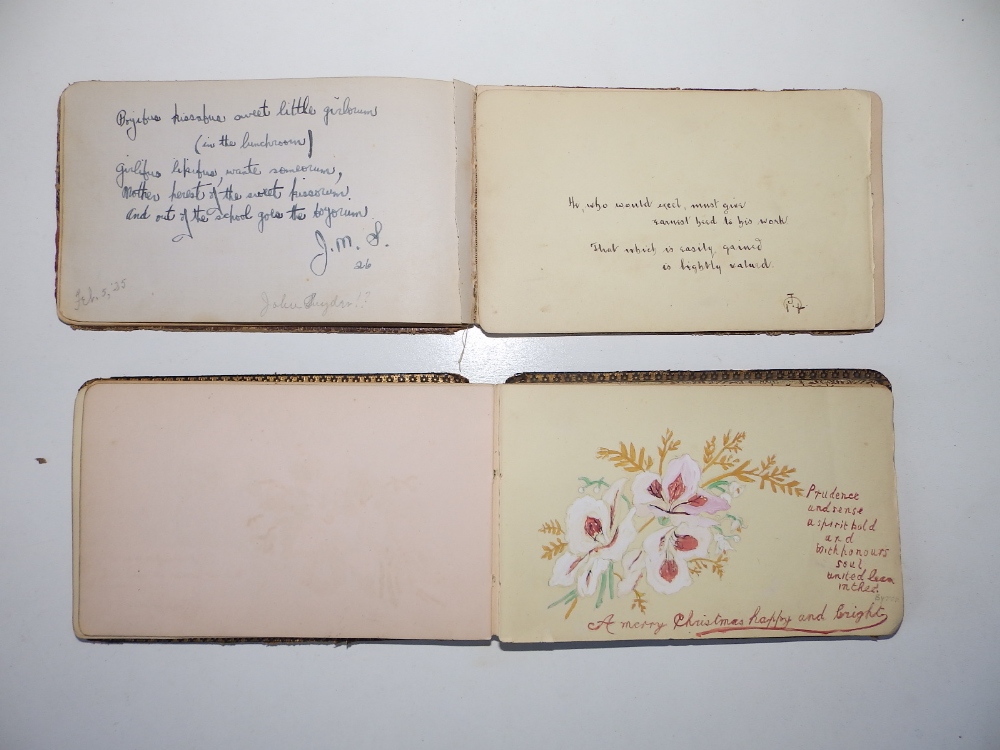 Boyibus kissabus sweet little girlorum
(in the lunchroom)
girlibus likibus, wante someorum,
Mother herest of the sweet kissorum.
and out of the school goes the boyorum
J. M. S.
26
Feb. 5, '25
John Snyder!?
He, who would excel, must give
earnest heed to his work
That which is easily gained
is lightly valued.
Prudence
and sense
a spirit bold
and
with honours
soul
united been
in thee.
A merry Christmas happy and bright